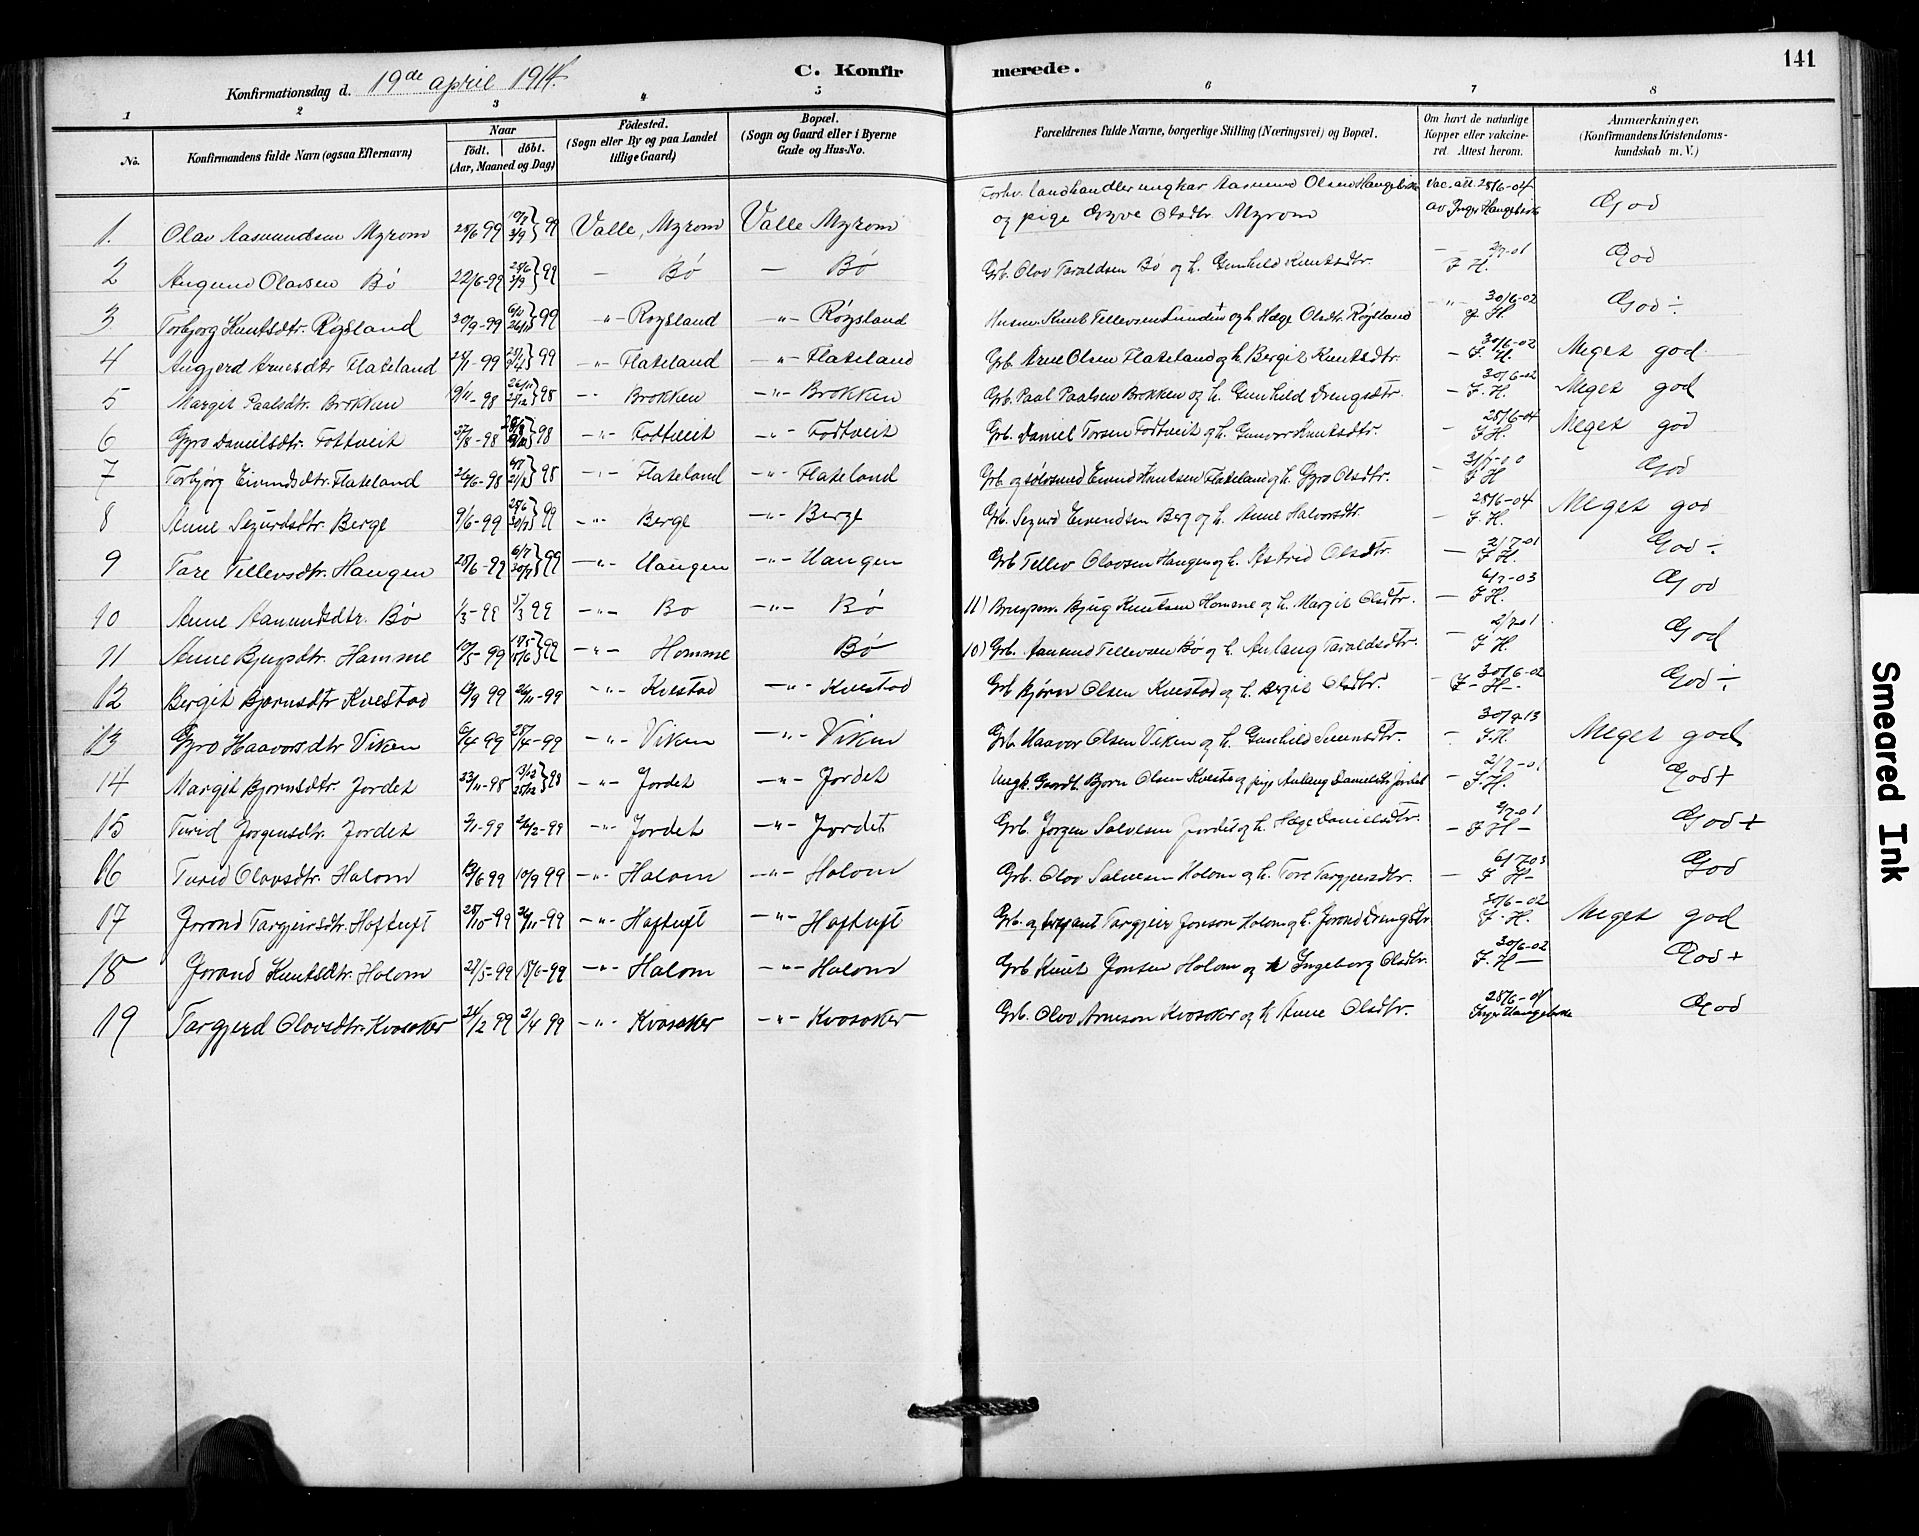 141
Konfirmationsdag d. 19de april 1914.
C. Konfirmerede.
1 2 3 4 5 6 7 8
No.
Konfirmandens fulde Navn (ogsaa Efternavn)
Naar
født. døbt.
(Aar, Maaned og Dag)
Födested.
(Sogn eller By og paa Landet
tillige Gaard)
Bopæl.
(Sogn og Gaard eller i Byerne
Gade og Hus-No.
Forældrenes fulde Navne, borgerlige Stilling (Næringsvei) og Bopæl.
Om havt de naturlige
Kopper eller vakcine-
ret. Attest herom.
Anmærkninger.
(Konfirmandens Kristendoms-
kundskab m. V.)
1. Olav Aasmundsen Myrom 99 Valle, Myrom Valle Myrom Forhv. landhandler ungkar Aasmund Olsen Haugebirke Vac. att. 28/6-04
og pige Gyve Olsdtr. Myrom av Inger Haugebirke God
2 Augund Olavsen Bø 22/6-99 99 — Bø — Bø Grb. Olov Taraldsen Bø og h. Gunhild Knutsdtr. — 2/7-01 F H. God
3 Torbjorg Knutsdtr. Røysland 30/9-99 99 -"- Roysland -"- Røysland Husm. Knut Tellevsen Lunden og h. Hæge Olsdtr. Røysland 30/6-02 God ÷
4 Augjerd Arnesdtr Flateland 99 -"- Flateland -"- Flateland Grb. Arne Olsen Flateland og h. Bergit Knutsdtr. — 30/6-02 F. H. Meget god
5 Margit Paalsdtr. Brokken 9/11-98 98 Brokken -"- Brokken Grb. Paal Paalsen Brokken og h. Gunhild Drengsdtr. — 30/6-02 F. H. Meget god
6 Gyro Danielsdtr. Fottveit 98 -"- Fodtveit -"- Fodtveit Grb. Daniel Torsen Fodtveit og h. Gunvor Knutsdtr. — 28/6-04 F H. Meget god
7 Torbjørg Eivindsdtr. Flateland 26/6-98 98 Flateland -"- Flateland Grb. og sølvsmed Eivind Knutsen Flateland og h. Gyro Olsdtr. — F H God
8 Anne Sigurdsdtr. Berge 9/6-99 99 -"- Berge -"- Berge Grb. Sigurd Eivindsen Berg og h. Anne Halvorsdtr. — 28/6-04 F. H. Meget god
9 Tare Tellevsdtr. Haugen 25/6-99 99 -"- Haugen -"- Haugen Grb Tellev Olavsen Haugen og h. Astrid Olsdtr. — 2/7-01 F H. God ÷
10 Anne Aamundsdtr. Bø 1/3-99 5/3 99 -"- Bo -"- Bø 11) Brugsm. Bjug Knutsen Homme og h. Margit Olsdtr. — 6/7-03 F H. God
11 Anne Bjugsdtr. Homme 10/5-99 99 -"- Homme Bø 10) Grb. Aamund Tellevsen Bø og h. Aulaug Taraldsdtr. — 2/7-01 F H God
12 Bergit Bjornsdtr Kvestad 99 26/11-99 -"- Kvestad -"- Kvestad Grb Bjørn Olsen Kvestad og h. Bergit Olsdtr. 30/6-02 F-H- God ÷
13 Gyro Haavorsdtr Viken 6/4-99 25/4-99 -"- Viken -"- Viken Grb. Haavor Olsen Viken og h. Gunhild F.H. Meget god
14 Margit Bjornsdtr. Jordet 23/11-98 98 -"- Jordet -"- Jordet Ungk. Bjorn Olsen Kvesta og pige Aulaug Danielsdtr Jordet — 2/7-01 F.H. God +
15 Turid Jorgensdtr. Jordet 99 -"- Jordet -"- Jordet Grb. Jorgen Salvesen Jordet og h. Hæge Danielsdtr. — F H - God +
16 Turid Olovsdtr. Holom 99 10/9 99 -"- Holom -"- Holom Grb. Olov Salvesen Holom og h. Tore Targjersdtr. — 6/7 03 F H- God
17 Jorond Targjeirsdtr. Hoftuft 28/10-99 26/11-99 -"- Hoftuft -"- Hoftuft Grb. og Targjeir Jonson Holom og h. Jorond Drengsdtr. 30/6-02 F-H. Meget god
18 Jorand Knutsdtr. Holom 99 18/6-99 -"- Holom -"- Holom Grb Knut Jonsen Holom og h Ingeborg Olsdtr. 30/6-02 F. H- God +
19 Targjerd Olovsdtr. Kvosaker 99 2/4 99 -"- Kvosaker -"- Kvosaker Grb. Olov Arneson Kvosaker og h Anne Olsdtr. 28/6-04 Inger Haugebirke God
Smeared Ink